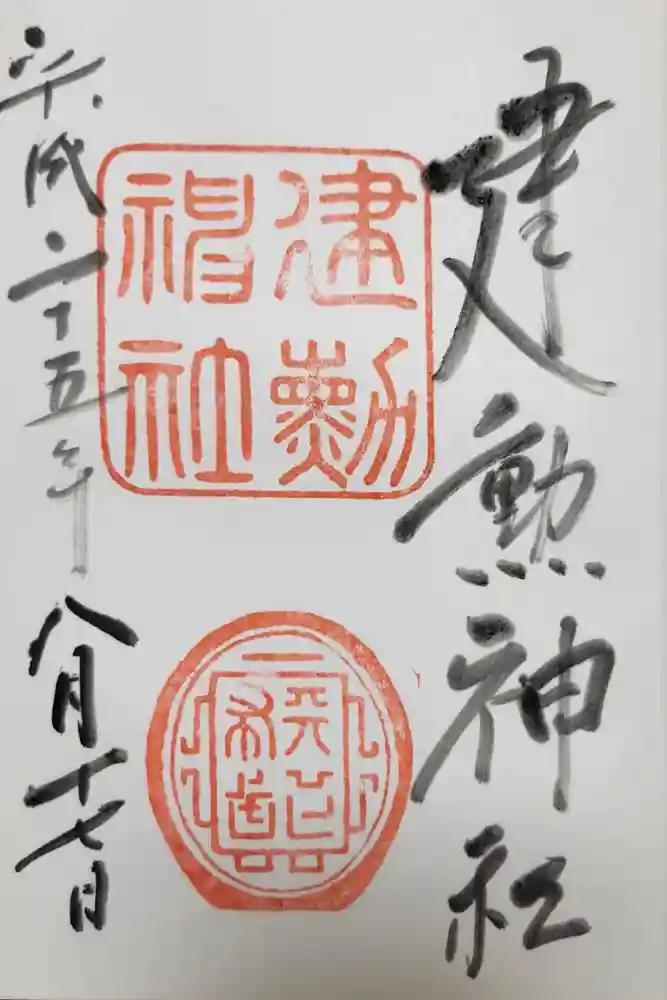 建勲神社
建勲
神社
天下布武
平成二十五年 八月十七日